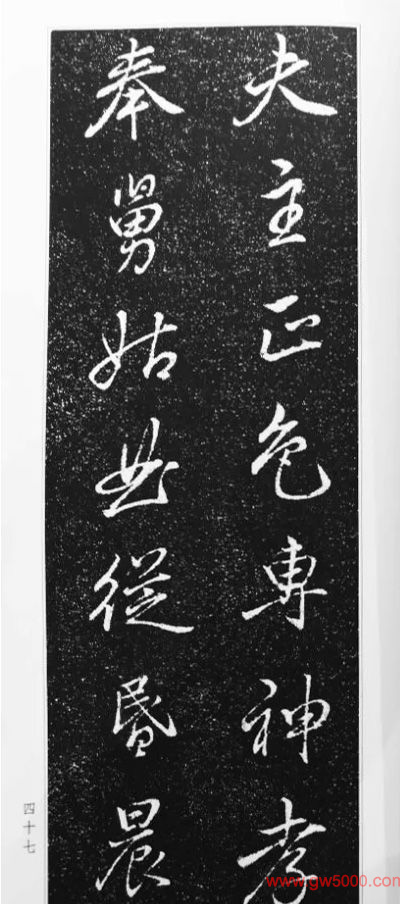 夫主正色專神孝
奉舅姑曲從昏晨
四十七
www.gw5000.com